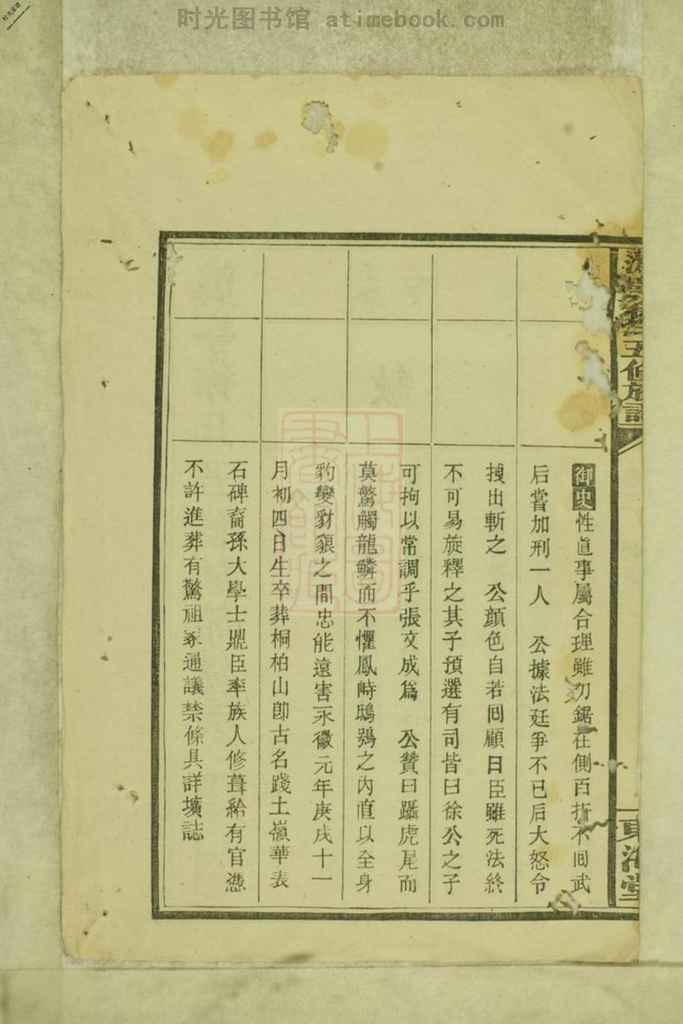 时光图书馆 atimebook.com
五修族譜
東海堂
御史性眞事屬合理雖刀鋸在側百折不囘武
后嘗加刑一人 公據法廷爭不已后大怒令
拽出斬之 公顔色自若囘顧曰臣雖死法終
不可易旋釋之其子預選有司皆曰徐公之子
可拘以常調乎張文成爲 公贊曰躡虎尾而
莫驚觸龍鱗而不懼鳳跱鴟鴞之內直以全身
豹變豺狼之間忠能遠害永徽元年庚戌十一
月初四日生卒葬桐柏山卽古名踐土嶺華表
石碑裔孫大學士鼎臣率族人修葺給有官憑
不許進葬有驚祖冢通議禁條具詳墳誌